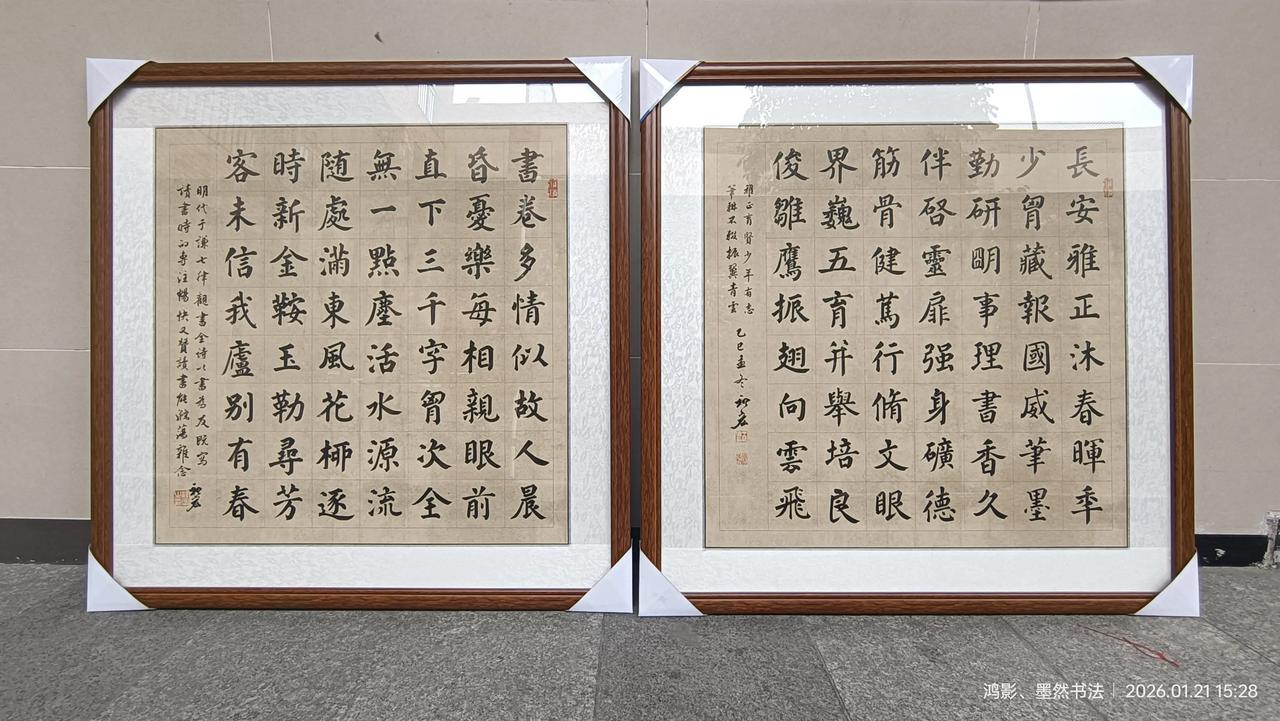 長安雅正沐春暉秊
少胷藏報國威筆墨
勤研明事理書香久
伴啓靈扉强身礦德
筋骨健篤行脩文眼
界巍五育并舉培良
俊雛鷹振翅向雲飛
雅正育賢少年有志
筆耕不輟振翼青雲 乙巳孟冬
書卷多情似故人晨
昏憂樂每相親眼前
直下三千字胷次全
無一點塵活水源流
随處滿東風花柳逐
時新金鞍玉勒尋芳
客未信我廬别有春
明代于謙七律觀書全诗以書為友既寫
讀書時的專注暢快又贊讀書能滌蕩雜念
鸿影、墨然书法 | 2026.01.21 15:28